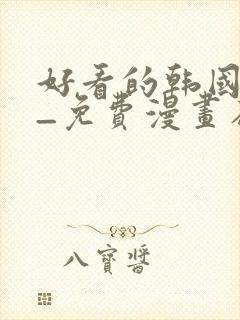 好看的韩國
–免费漫畫
八寶醬